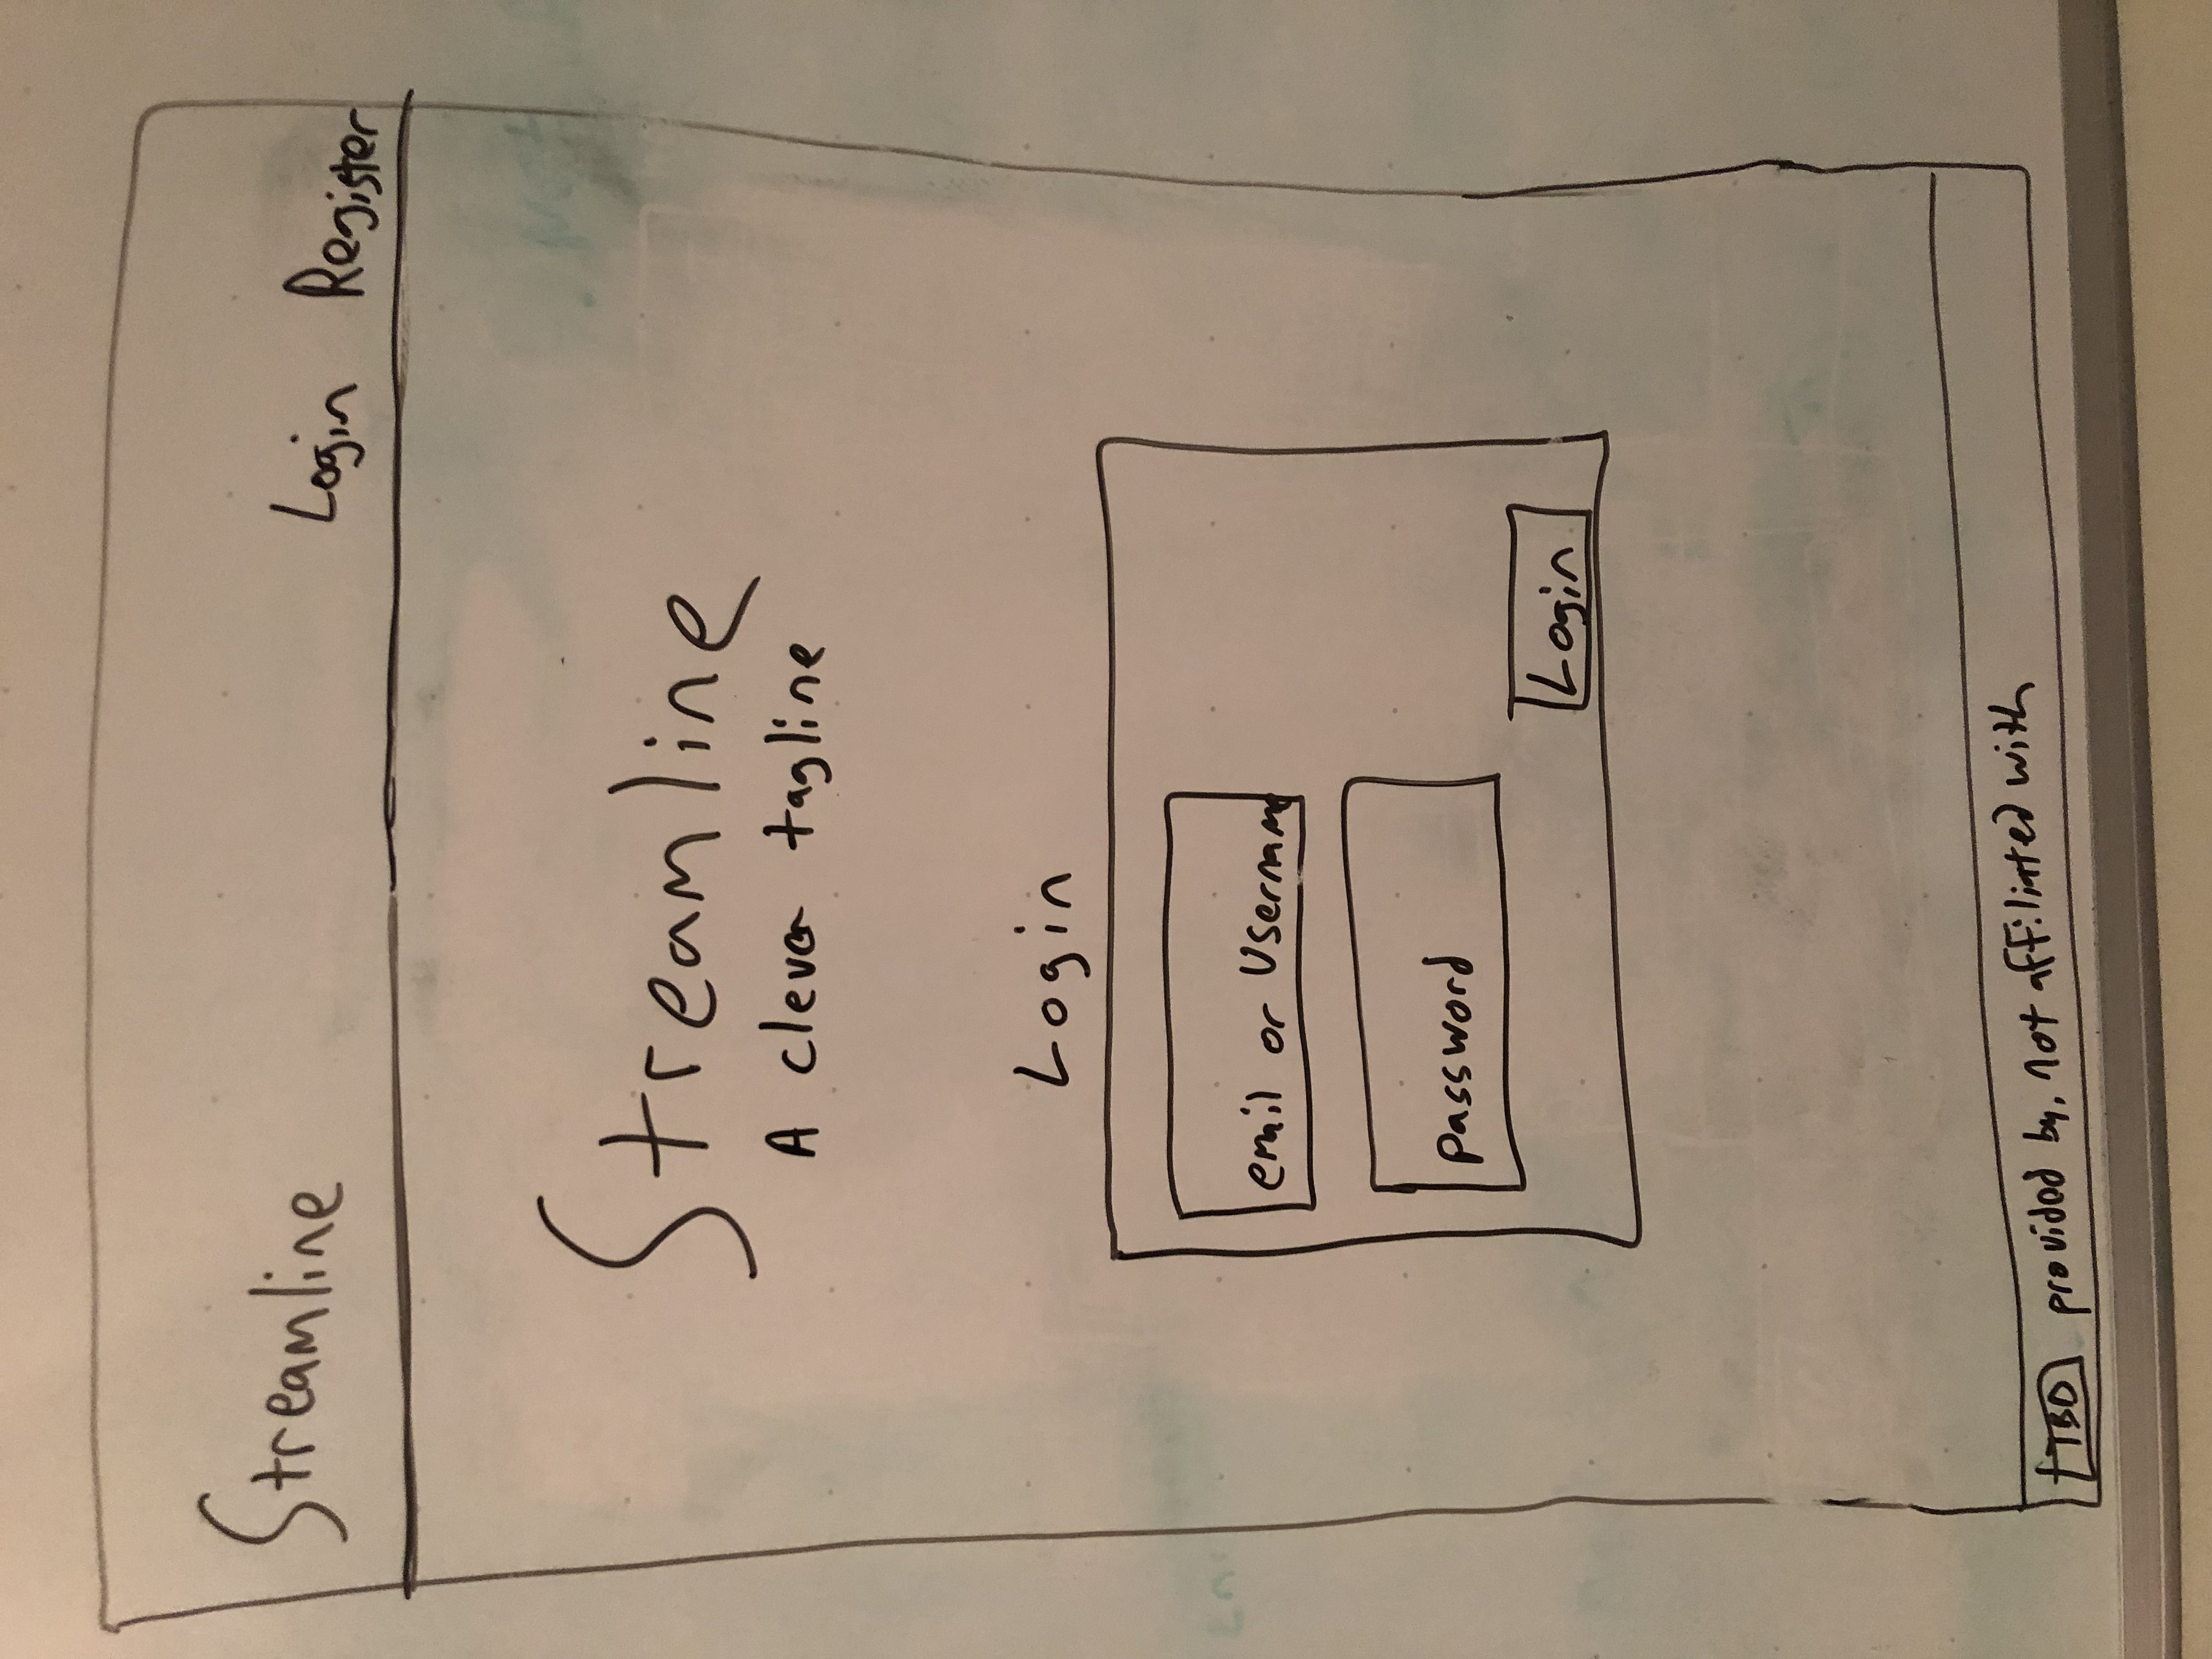 Streamline
Login Register
Streamline
A clever tagline
Login
email or Username
password
Login
TBD provided by, not affiliated with